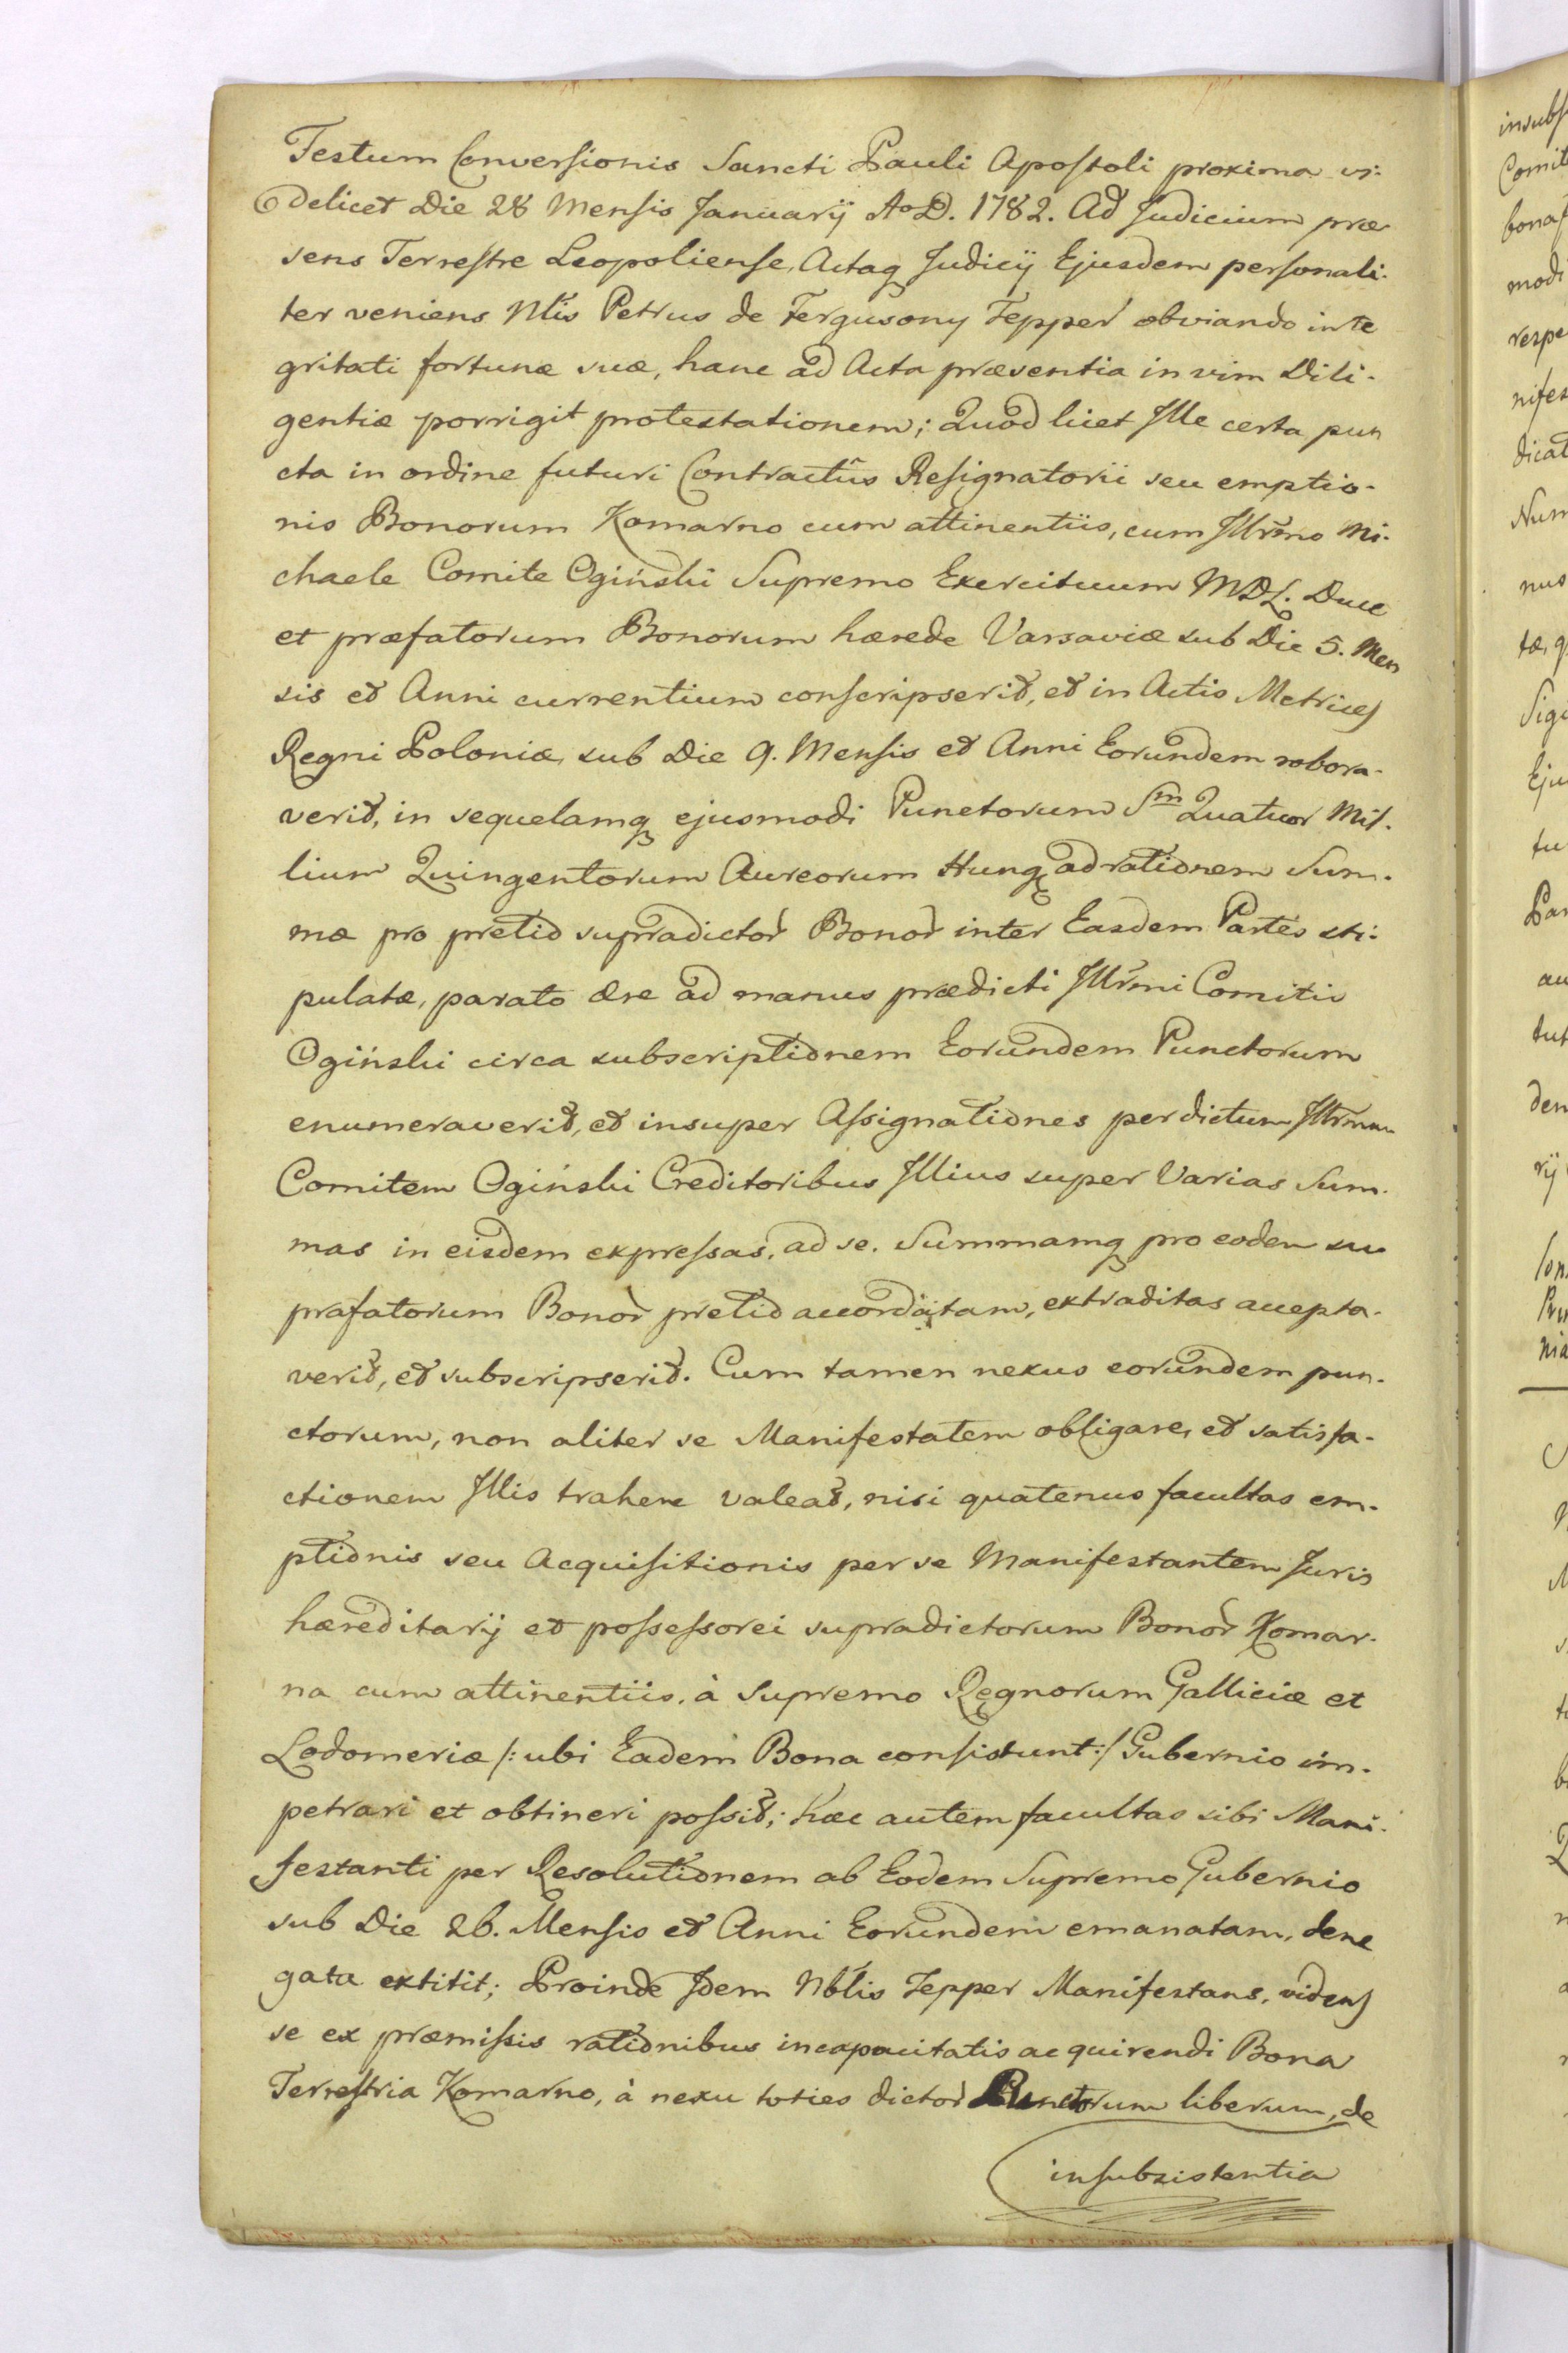 Festum Conversionis Sancti Pauli Apostoli proxima vi-
delicet Die 28 Mensis Januarij Ao D. 1782. Ad Judicium præ
sens Terrestre Leopoliense, Actaq Judicij Ejusdem personali-
ter veniens Nlis Petrus de Fergusony Tepper obviando inte
gritati fortunæ suæ, hanc ad Acta præsentia in vim Dili-
gentiæ porrigit protestationem; Quod licet Ille certa pun
cta in ordine futuri Contractûs Resignatorii seu emptio-
nis Bonorum Komarno cum attinentiis, cum Illrmo Mi-
chaele Comite Ogiński Supremo Exercituum MDL. Duce
et præfatorum Bonorum hærede Varsaviæ sub Die 5. Men
sis et Anni currentium conscripserit, et in Actis Metrices
Regni Poloniæ, sub Die 9. Mensis et Anni Eorundem robora-
verit, in sequelamq ejusmodi Punctorum Sm Quatuor Mil-
lium Quingentorum Aureorum Hung ad rationem Sum-
mæ pro pretio supradictor Bonor inter Easdem Partes sti-
pulatæ, parato ære ad manus prædicti Illrmi Comitis
Ogiński circa subscriptionem Eorundem Punctorum
enumeraverit, et insuper Assignationes per dictum Illrmum
Comitem Ogiński Creditoribus Illius super Varias Sum-
mas in eisdem expressas, ad se. Summamq pro eodem su
præfatorum Bonor pretio accordatam, extraditas accepta-
verit, et subscripserit. Cum tamen nexus eorundem pun-
ctorum, non aliter se Manifestatem obligare, et satisfa-
ctionem Illis trahere valeat, nisi quatenus facultas em-
ptionis seu Acquisitionis per se Manifestantem Juris
hæreditarij et possessorei supradictorum Bonor Komar-
na cum attinentiis, à Supremo Regnorum Galliciæ et
Lodomeriæ /: ubi Eadem Bona consistunt :/ Gubernio im-
petrari et obtineri possit; hæc autem facultas sibi Mani-
festanti per Resolutionem ab Eodem Supremo Gubernio
sub Die 26. Mensis et Anni Eorundem emanatam, dene
gata extitit; Proinde Idem Nblis Tepper Manifestans, videns
se ex præmissis rationibus incapacitatis acquirendi Bona
Terrestria Komarno, à nexu toties dictor Punctorum liberum, de
insubsistentia
insubs
Comit
bona
modi
respe
nifes
dicat
Num
nus
Ejus